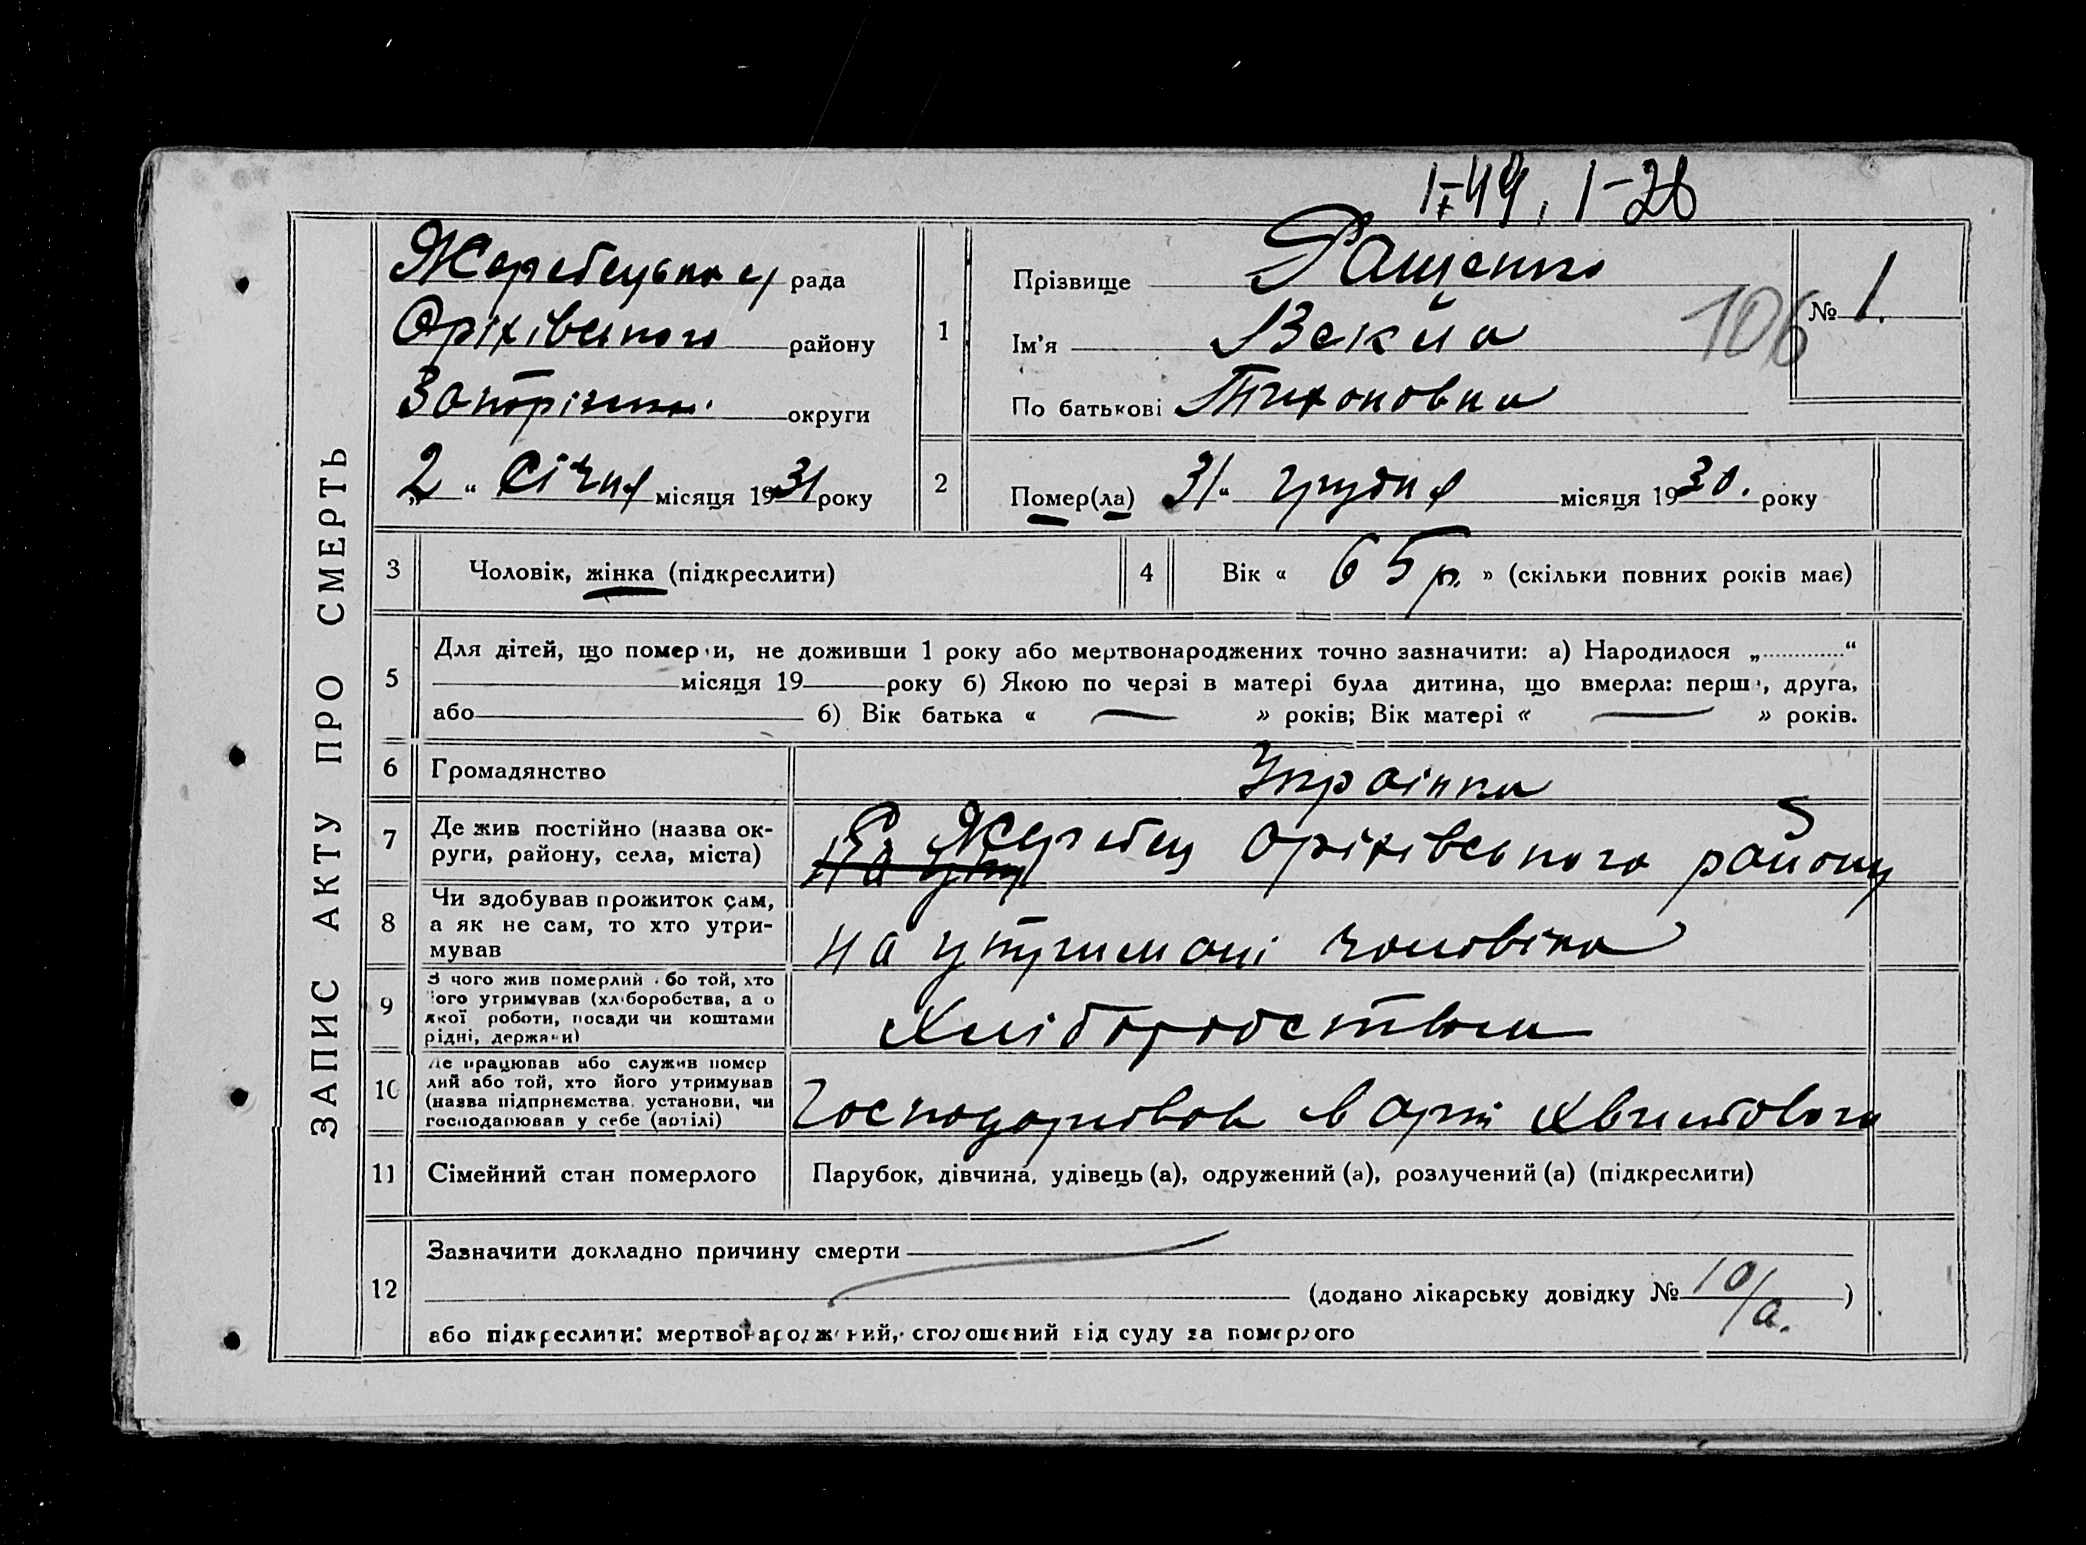 I-49, 1-26
ЗАПИС АКТУ ПРО СМЕРТЬ
Жеребецька с/ рада
Оріхівського району
Запоріжськ. округи
„2“ Січня місяця 1931 року
1
Прізвище Ращенко
Ім'я
По батькові Тихоновна
№ 1.
106
2
Помер(ла) 31“ грудня місяця 1930. року
3 Чоловік, жінка (підкреслити)
4 Вік « 65 р. » (скільки повних років має)
5 Для дітей, що померли, не доживши 1 року або мертвонароджених точно зазначити: а) Народилося „ “
місяця 19 року б) Якою по черзі в матері була дитина, що вмерла: перша, друга,
або б) Вік батька « — » років; Вік матері « — » років.
6 Громадянство Українка
7 Де жив постійно (назва ок-
руги, району, села, міста)
с. Жеребец Оріхівського району
8 Чи здобував прожиток сам,
а як не сам, то хто утри-
мував
на утримані чоловіка
9 З чого жив померлий або той, хто
його утримував (хліборобства, а о
якої роботи, посади чи коштами
рідні, держави)
Хліборобством
10 Де працював або служив помер
лий або той, хто його утримував
(назва підприємства, установи, чи
господарював у себе (артілі)
Господарював в арт
11 Сімейний стан померлого Парубок, дівчина, удівець (а), одружений (а), розлучений (а) (підкреслити)
12 Зазначити докладно причину смерти
(додано лікарську довідку № 10/а. )
або підкреслити: мертвонароджений, оголошений від суду за померлого